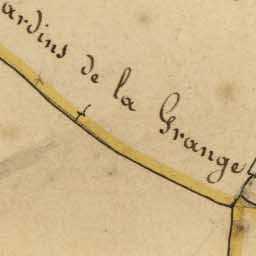 ardins de la Grange